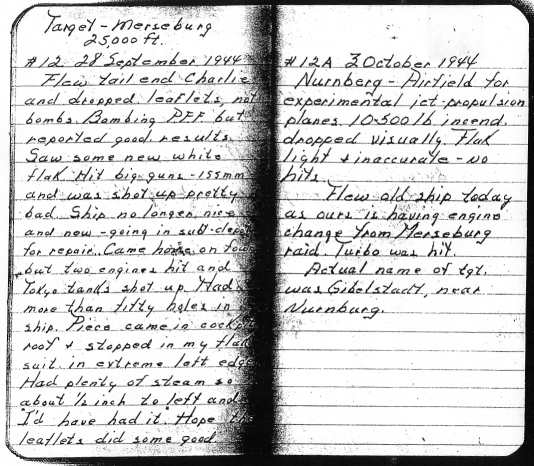 Target - Merseburg
25,000 ft.
#12 28 September 1944
Flew tail end Charlie
and dropped leaflets, not
bombs. Bombing PFF but
reported good results.
Saw some new white
flak. Hit big guns - 155mm
and was shot up pretty
bad. Ship no longer nice
and new - going in sub-depot
for repair. Came home on four
but two engines hit and
Tokyo tanks shot up. Had
more than fifty holes in
ship. Piece came in cockpit
roof & stopped in my flak
suit in extreme left edge
Had plenty of steam so
about ½ inch to left and
"I'd have had it". Hope the
leaflets did some good.
#12A 3 October 1944
Nurnberg - Airfield for
experimental jet-propulsion
planes. 10-500 lb incend.
dropped visually. Flak
light & inaccurate - no
hits.
Flew old ship today
as ours is having engine
change from Merseburg
raid. Turbo was hit.
Actual name of tgt.
was Gibelstadt, near
Nurnburg.